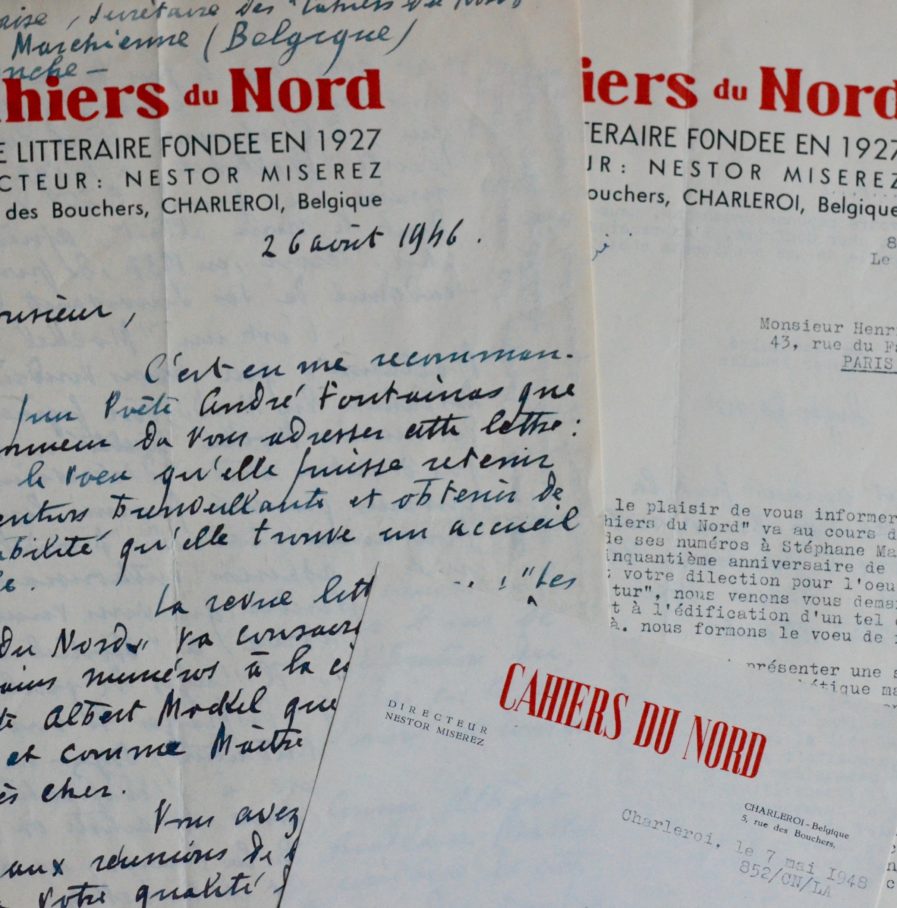 Secrétaire des "Cahiers du Nord"
Marchienne (Belgique)
hiers du Nord
E LITTERAIRE FONDEE EN 1927
CTEUR: NESTOR MISEREZ
des Bouchers, CHARLEROI, Belgique
26 août 1946.
onsieur,
C'est en me recomman-
Poète André Fontainas que
onneur de vous adresser cette lettre:
le voeu qu'elle puisse retenir
bienveillante et obtenir de
abilité qu'elle trouve un accueil
le.
La revue litt
du Nord" va consacr
ains numéros à la
Albert Mockel que
et comme Maître
ès cher.
Vous avez
aux réunions de
votre qualité
iers du Nord
TERAIRE FONDEE EN 1927
UR: NESTOR MISEREZ
ouchers, CHARLEROI, Belgique
8
Le
Monsieur Henr
43, rue du F
PARIS
le plaisir de vous informer
hiers du Nord" va au cours d
e ses numéros à Stéphane Ma
inquantième anniversaire de
votre dilection pour l'oeu
tur", nous venons vous deman
t à l'édification d'un tel
à. nous formons le voeu de
présenter une s
étique ma
"Les
CAHIERS DU NORD
DIRECTEUR
NESTOR MISEREZ
CHARLEROI-Belgique
5, rue des Bouchers,
Charleroi, le 7 mai 1948
852/CN/LA